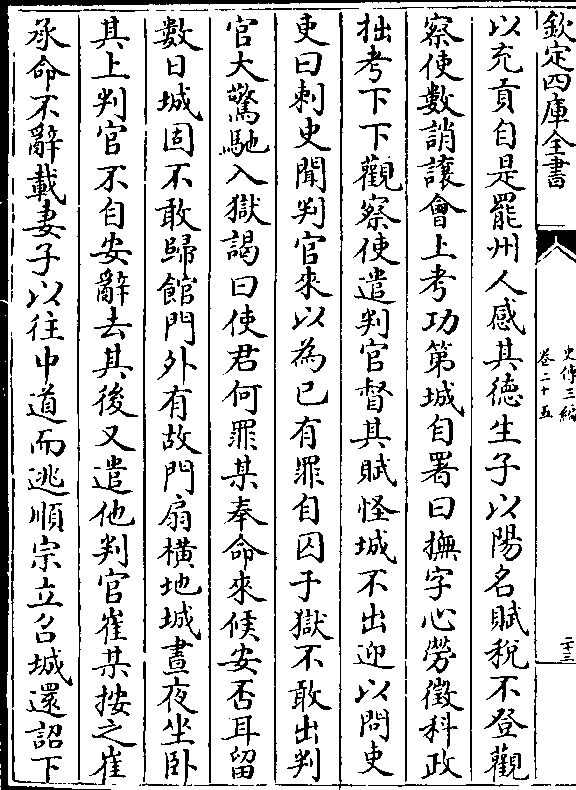 欽定四庫全書
史傳三編
卷二十五
二十三
以充貢自是罷州人感其德生子以陽名賦稅不登觀
察使數誚讓會上考功第城自署曰撫字心勞徵科政
拙考下下觀察使遣判官督其賦怪城不出迎以問吏
吏曰刺史聞判官來以為已有罪自囚于獄不敢出判
官大驚馳入獄謁曰使君何罪某奉命來候安否耳留
數日城固不敢歸館門外有故門扇橫地城晝夜坐臥
其上判官不自安辭去其後又遣他判官崔某按之崔
承命不辭載妻子以往中道而逃順宗立召城還詔下